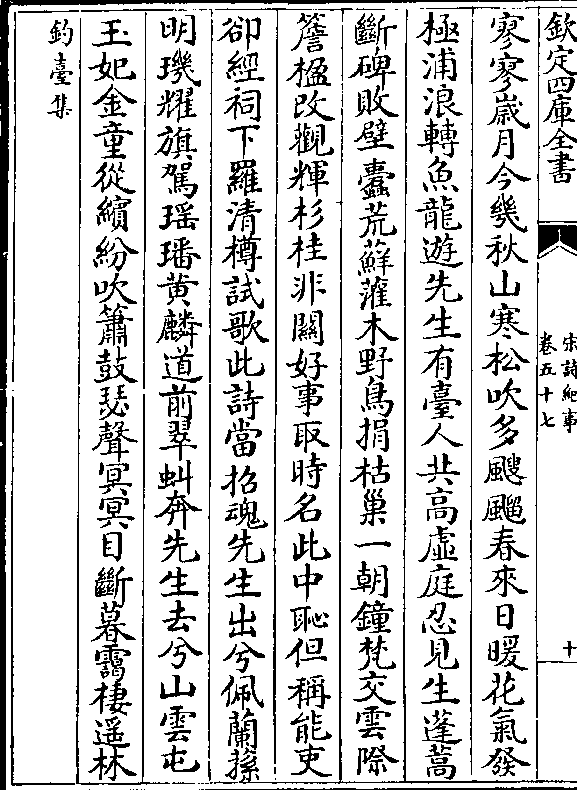 欽定四庫全書
宋詩紀事
卷五十七
十
寥寥歲月今幾秋山寒松吹多颼飀春來日暖花氣發
極浦浪轉魚龍遊先生有臺人共高虛庭忍見生蓬蒿
斷碑敗壁蠹荒蘚灌木野鳥捐枯巢一朝鐘梵交雲際
簷楹改觀輝杉桂非關好事取時名此中恥但稱能吏
卻經祠下羅清樽試歌此詩當招魂先生出兮佩蘭蓀
明璣耀旗駕瑶璠黄麟道前翠虯奔先生去兮山雲屯
玉妃金童從繽紛吹簫鼓瑟聲冥冥目斷暮靄棲遥林
釣臺集